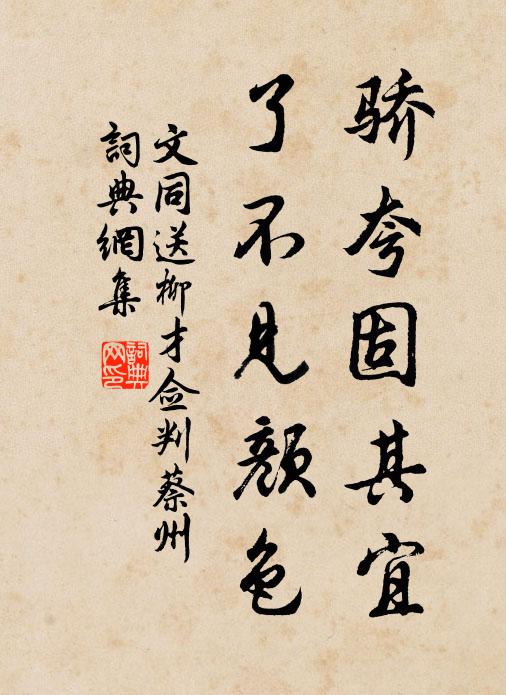 骄夸固其宜
了不见颜色
文同送柳才佥判蔡州
詞典網集
詞典网印